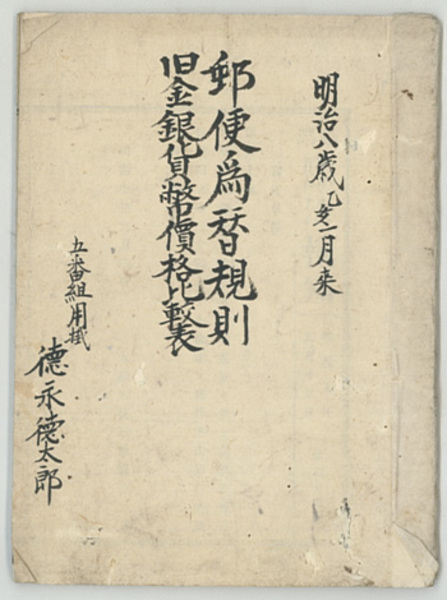 明治八歳乙亥一月来
郵便為替規則
旧金銀貨幣價格比較表
五番組用掛
德永德太郎